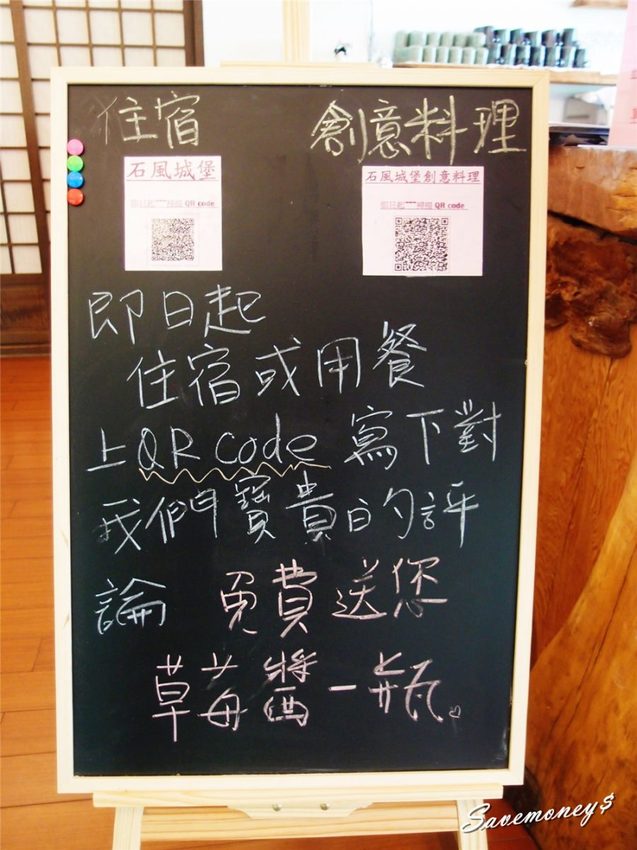 住宿 創意料理
石風城堡 石風城堡創意料理
QR code QR code
即日起
住宿或用餐
上QR code 寫下對
我們寶貴的評
論 免費送您
草莓醬一瓶。
Savemoney$